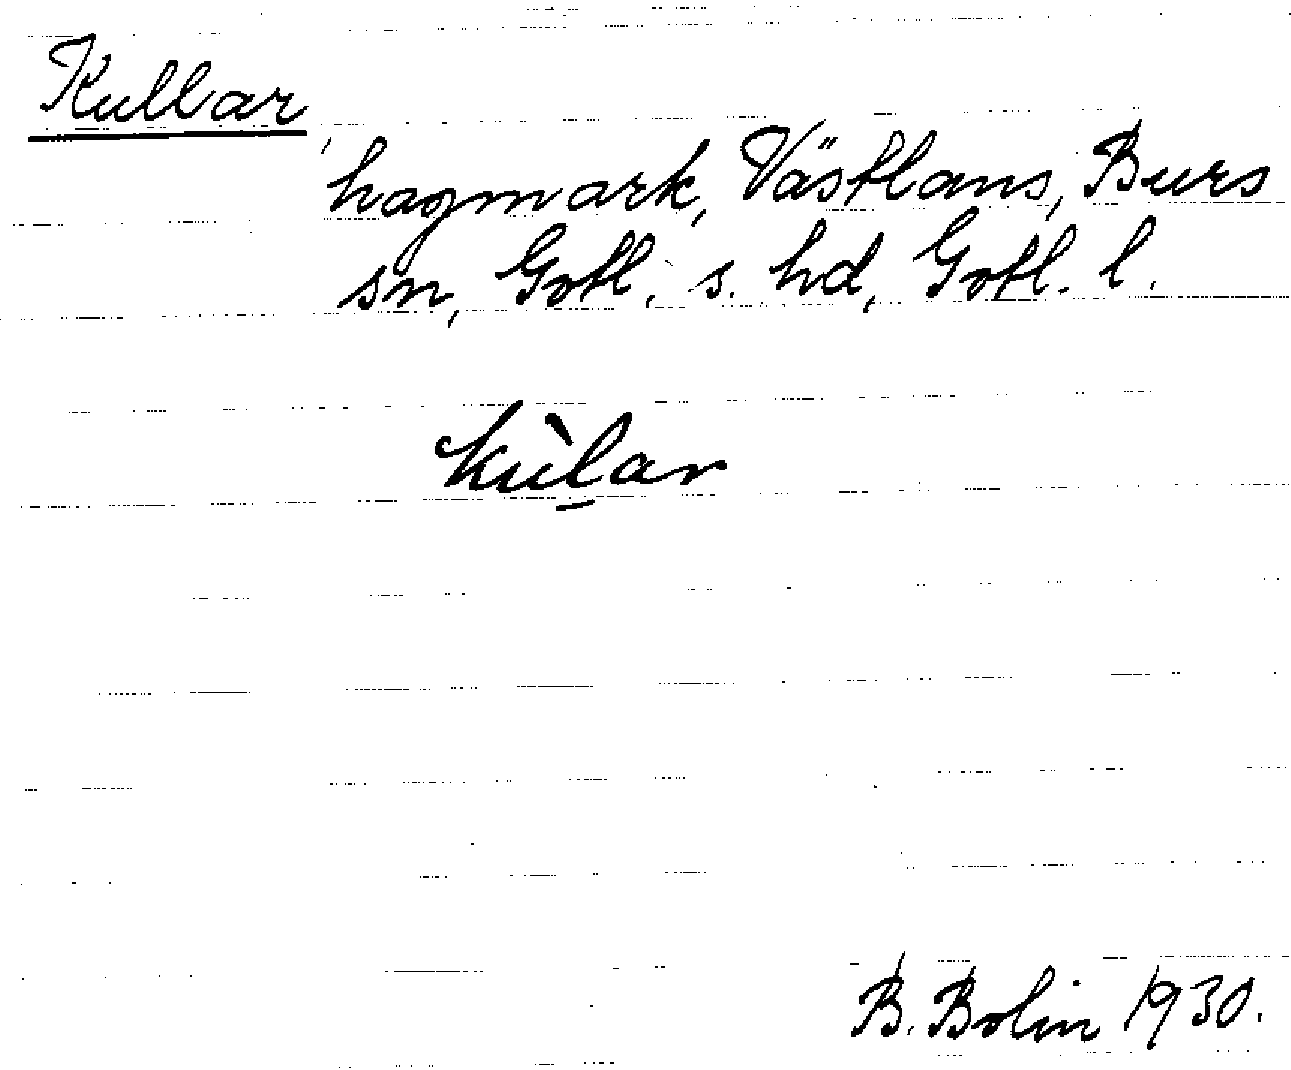 Kullar,
hagmark, Västlans, Burs
sn, Gotl. s. hd, Gotl. l.
kùl̠ar
B. Bolin 1930.